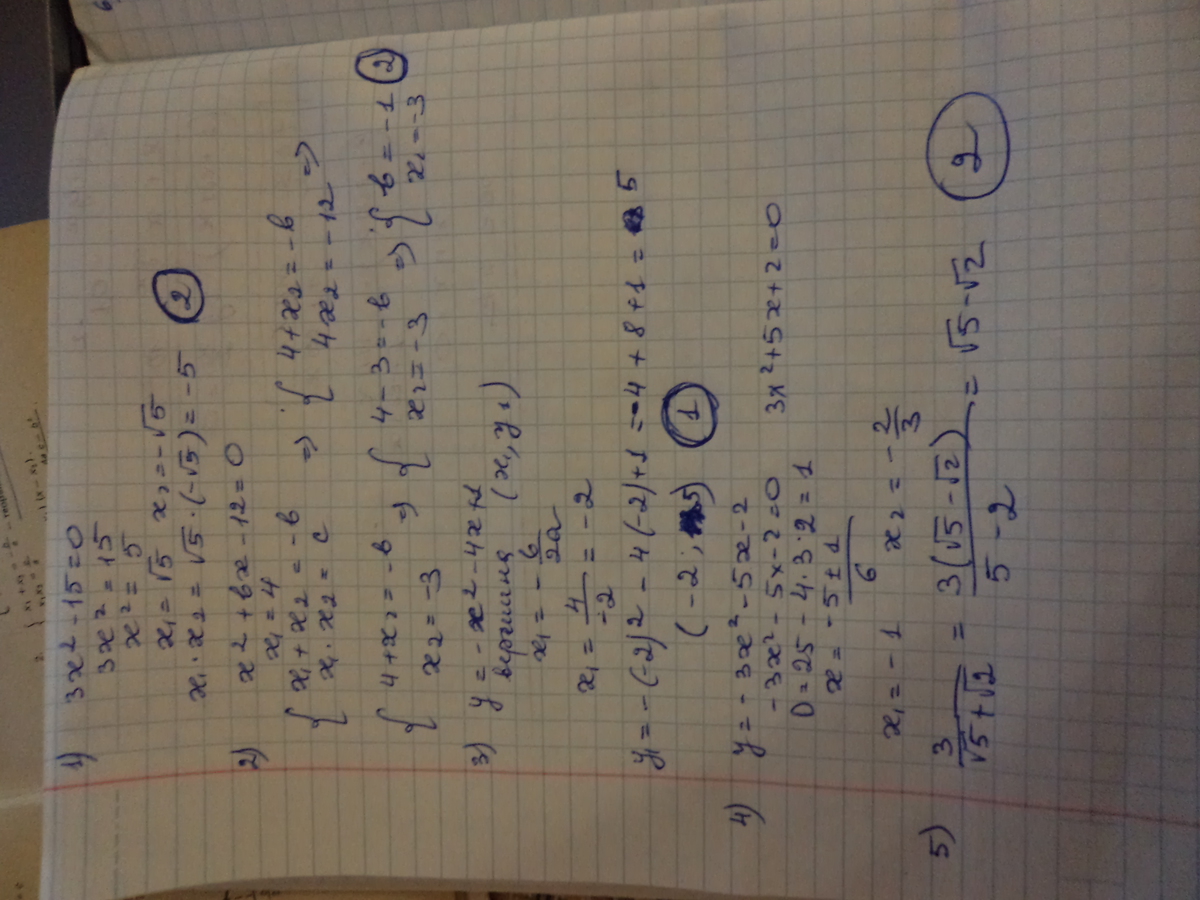 1) 3x² - 15 = 0
3x² = 15
x² = 5
x₁ = √5 x₂ = -√5
x₁ · x₂ = √5 · (-√5) = -5 ②
2) x² + bx - 12 = 0
x₁ = 4
{ x₁ + x₂ = -b => { 4 + x₂ = -b
x₁ · x₂ = c 4x₂ = -12 =>
{ 4 + x₂ = -b => { 4 - 3 = -b => { b = -1 ②
x₂ = -3 x₂ = -3 x₂ = -3
3) y = -x² - 4x + 1
вершина (x₁, y₁)
x₁ = -b/2a
x₁ = 4/-2 = -2
y₁ = -(-2)² - 4(-2) + 1 = -4 + 8 + 1 = 5
(-2; 5) ①
4) y = -3x² - 5x - 2
-3x² - 5x - 2 = 0 3x² + 5x + 2 = 0
D = 25 - 4·3·2 = 1
x = -5 ± 1 / 6
x₁ = -1 x₂ = -2/3
5) 3/√5 + √2 = 3(√5 - √2)/5 - 2 = √5 - √2 ②